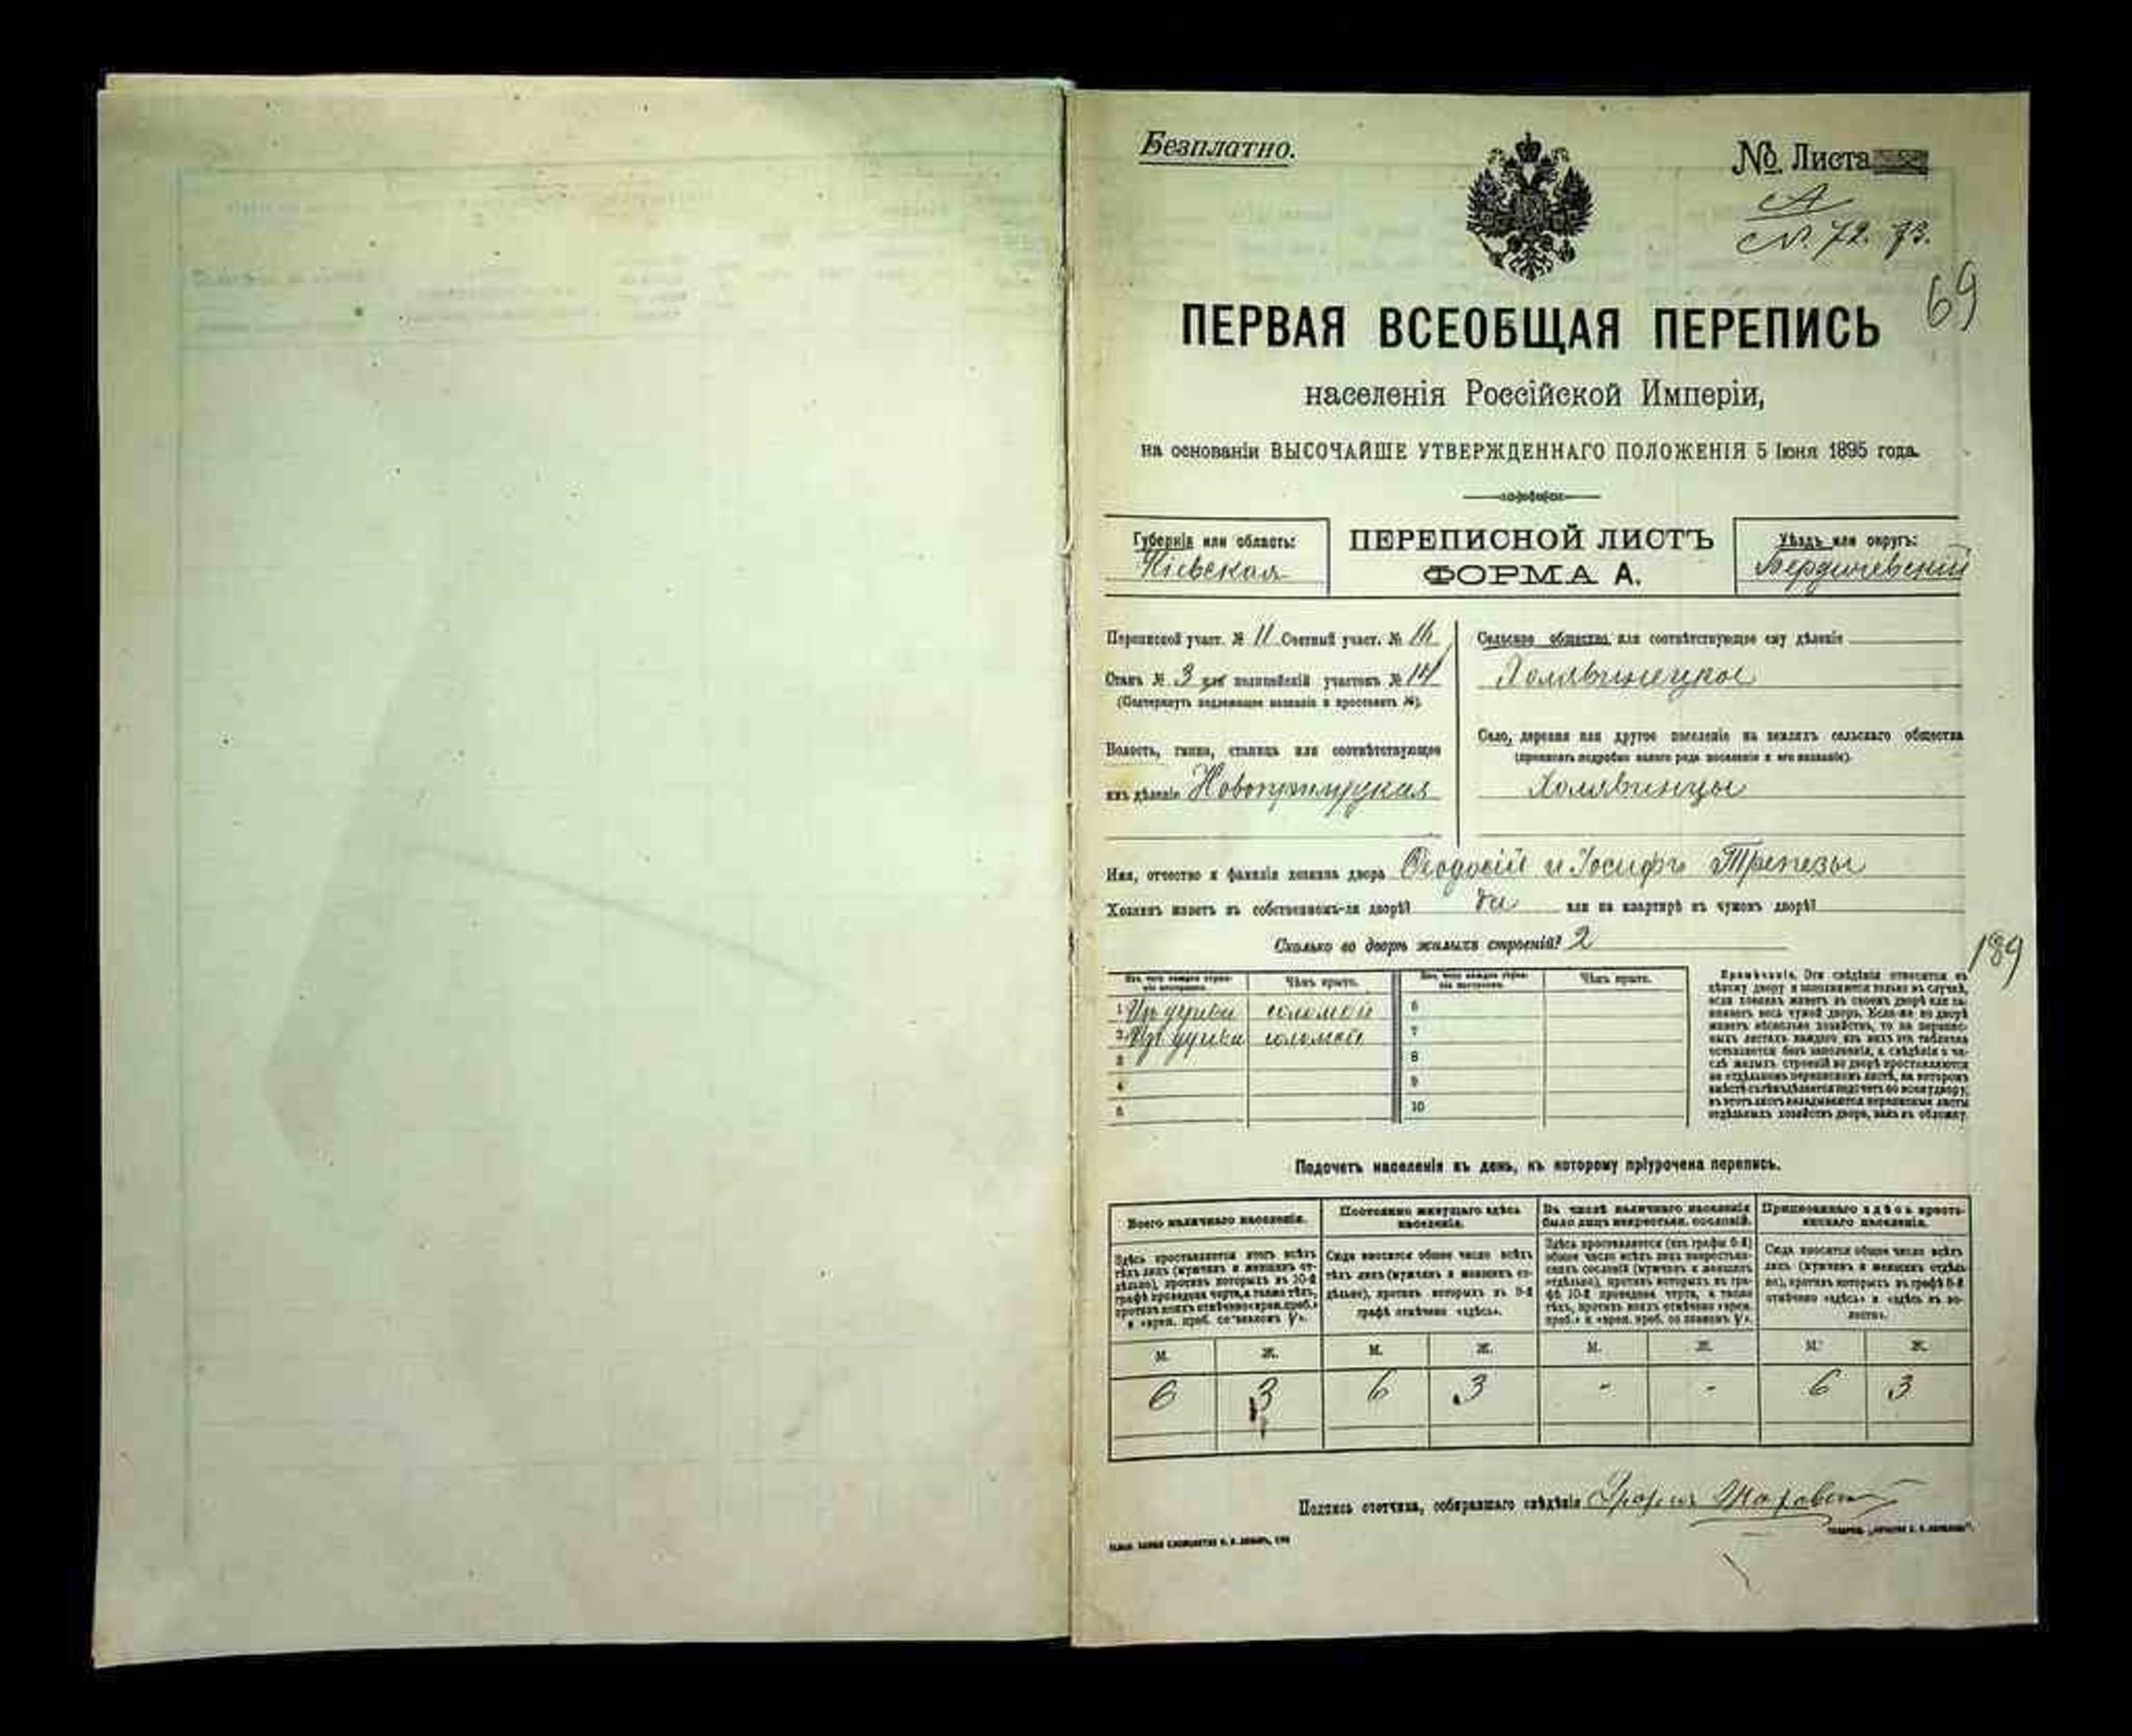 Безплатно.
№ Листа
А
№ 72. 73.
69
ПЕРВАЯ ВСЕОБЩАЯ ПЕРЕПИСЬ
населенія Россійской Имперіи,
на основаніи ВЫСОЧАЙШЕ УТВЕРЖДЕННАГО ПОЛОЖЕНІЯ 5 Іюня 1895 года.
Губернія или область:
Кіевская
ПЕРЕПИСНОЙ ЛИСТЪ
ФОРМА А.
Уѣздъ или округъ:
Бердичевскій
Переписной участ. № 11 Счетный участ. № 16
Станъ № 3 или полицейскій участокъ № 14
(Подчеркнуть подлежащее названіе и проставить №).
Волость, гмина, станица или соотвѣтствующее
имъ дѣленіе Новоприлуцкая
Сельское общество или соотвѣтствующее ему дѣленіе
Холявинецкое
Село, деревня или другое поселеніе на земляхъ сельскаго общества
(прописать подробно какого рода поселеніе и его названіе).
Холявинцы
Имя, отчество и фамилія хозяина двора Ѳеодосій и Іосифъ Трепезы
Хозяинъ живетъ въ собственномъ-ли дворѣ? да или на квартирѣ въ чужомъ дворѣ?
Сколько во дворѣ жилыхъ строеній? 2
189
Изъ чего каждое строеніе построено.
Чѣмъ крыто.
Изъ чего каждое строеніе построено.
Чѣмъ крыто.
1 Изъ дерева соломой 6
2 Изъ дерева соломой 7
3 8
4 9
5 10
Примѣчаніе. Эти свѣдѣнія относятся къ
цѣлому двору и заполняются только въ случаѣ,
если хозяинъ живетъ въ своемъ дворѣ или за-
нимаетъ весь чужой дворъ. Если-же во дворѣ
живетъ нѣсколько хозяйствъ, то на перепис-
ныхъ листахъ каждаго изъ нихъ эта табличка
оставляется безъ заполненія, а свѣдѣнія о чи-
слѣ жилыхъ строеній во дворѣ проставляются
на отдѣльномъ переписномъ листѣ, на которомъ
вмѣстѣ съ тѣмъ дѣлается подсчетъ по всему двору;
въ этотъ листъ вкладываются переписные листы
отдѣльныхъ хозяйствъ двора, какъ въ обложку.
Подсчетъ населенія въ день, къ которому пріурочена перепись.
Всего наличнаго населенія.
Здѣсь проставляется итогъ всѣхъ
тѣхъ лицъ (мужчинъ и женщинъ от-
дѣльно), противъ которыхъ въ 10-й
графѣ проведена черта, а также тѣхъ,
противъ коихъ отмѣчено «врем. преб.»
и «врем. преб. со знакомъ V».
Постоянно живущаго здѣсь
населенія.
Сюда вносится общее число всѣхъ
тѣхъ лицъ (мужчинъ и женщинъ от-
дѣльно), противъ которыхъ въ 9-й
графѣ отмѣчено «здѣсь».
Въ числѣ наличнаго населенія
было лицъ некрестьян. сословій.
Здѣсь проставляется (изъ графы 6-й)
общее число всѣхъ лицъ некрестьян-
скихъ сословій (мужчинъ и женщинъ
отдѣльно), противъ которыхъ въ гра-
фѣ 10-й проведена черта, а также
тѣхъ, противъ коихъ отмѣчено «врем.
преб.» и «врем. преб. со знакомъ V».
Приписаннаго здѣсь кресть-
янскаго населенія.
Сюда вносится общее число всѣхъ
лицъ (мужчинъ и женщинъ отдѣль-
но), противъ которыхъ въ графѣ 8-й
отмѣчено «здѣсь» и «здѣсь въ во-
лости».
М. Ж. М. Ж. М. Ж. М. Ж.
6 3 6 3 - - 6 3
Подпись счетчика, собиравшаго свѣдѣнія